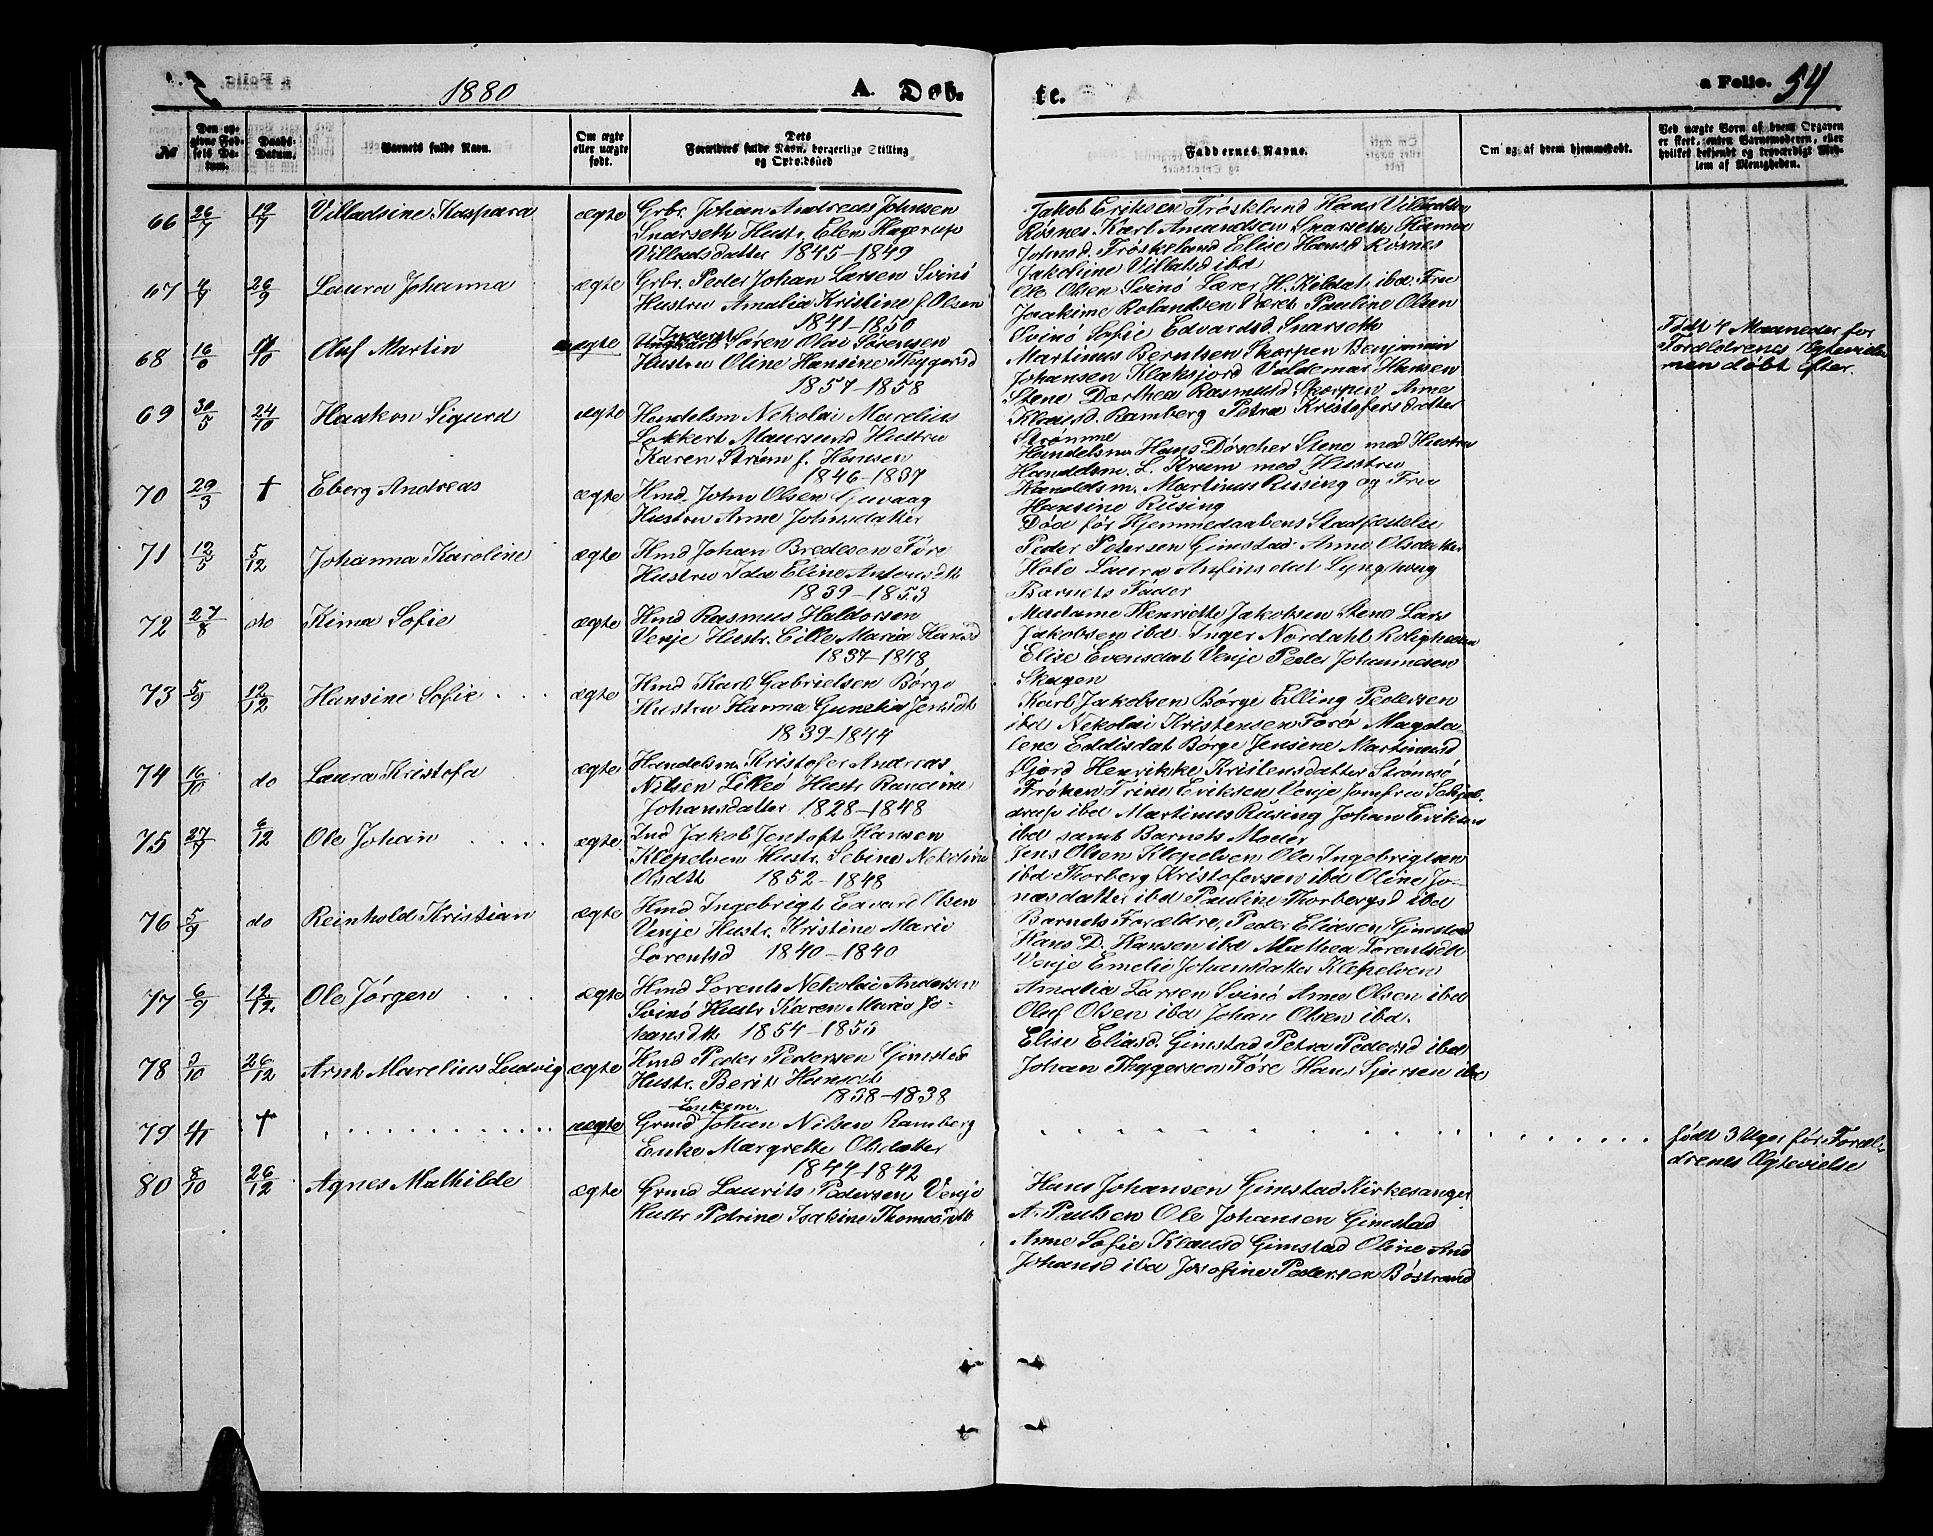 1880
A. Døb-
te.
a Folio. 54
№
Den opgivne Fødsels Datum.
Daabs-Datum.
Barnets fulde Navn.
Om ægte eller uægte født.
Dets Forældres fulde Navn, borgerlige Stilling og Opholdssted
Faddernes Navne.
Om og af hvem hjemmedøbt.
Ved uægte Børn af hvem Opgaven er sket, enten Barnemoderen, eller hvilket bekjendt og troværdigt Medlem af Menigheden.
66 26/7 19/9 Villadsine Kaspara ægte Grbr. Johan Andreas Johnsen
Snarseth Hustr. Elen Hagerup
Villadsdatter 1845-1849
Jakob Eriksen Frøskland Hans Villadsen
Røsnes Karl Amundsen Snarseth Hanna
Johnsd. Frøskeland Elise Hansd Røsnes
Jakobine Villadsd ibd
67 26/9 Laura Johanna ægte Grbr. Peder Johan Larsen Svinø
Hustru Amalia Kristine f. Olsen
1841-1850
Ole Olsen Svinø Lærer H. Kildal ibd. Fru
Joakime Rolandsen Pauline Olsen
Svinø Sofie Edvardsd. Snarseth
68 Oluf Martin uægte Søren Olai Sørensen
Hustru Oline Hansine Thygersd
1857-1858
Martinus Berntsen Skorpen Benjamin
Johansen Klaksjord Valdemar Hansen
Stene Dorthea Rasmusd Skorpen Anne
Klausd. Ramberg Petra Kristofersdatter
Strømme
Født 4 Maaneder før
Forældrenes Ægtevielse
men døbt efter.
69 30/5 24/10 Haakon Sigurd ægte Handelsm Nekolai Marelius
Lokkert Maursund Hustru
Karen Strøm f. Hansen
1846-1837
Handelsm Hans Døscher Stene med Hustru
Handelsm. L. Krum med Hustru
Handelsm. Martinus Rusing og Fru
Hansine Rusing
70 29/3 † Eberg Andreas ægte Hmd. John Olsen Guvaag
Hustru Anne Johnsdatter
Død før Hjemmedaabens Stadfæstelse
71 12/5 5/12 Johanna Karoline ægte Hmd Johan Bredesen Føre
Hustru Ida Eline Antonsdt
1839-1853
Peder Petersen Gimstad Anne Olsdatter
Hole Laura Anfinsdat Lynghaug
Barnets Fader
72 27/8 do Kima Sofie ægte Hmd Rasmus Haldorsen
Venje Hustr. Cille Maria Hansd
1837-1848
Madame Henriette Jakobsen Stene Lars
Jakobsen ibd Inger Nordahl Rolighaven
Elise Evensdat Venje Peder Johannesen
Skagen
73 5/9 12/12 Hansine Sofie ægte Hmd Karl Gabrielsen Børge
Hustru Hanna Gunelia Jensdt
1839-1844
Karl Jakobsen Børge Elling Pedersen
ibd Nekolai Kristensen Forø Magda-
lene Eddisdat Børge Jensine Martinusd
Fjord Henrikke Kristensdatter Strømsø
74 16/10 do Laura Kristofa ægte Handelsm Kristofer Andreas
Nilsen Litleø Hustr Randine
Johansdatter 1828-1848
Frøken Trine Eriksen Venje Jomfru Schjel-
drup ibd Martinus Rusing Johan Eriksen
ibd samt Barnets Moder
75 27/9 6/12 Ole Johan ægte Ind Jakob Jentoft Hansen
Klepelven Hustr. Sebine Nekoline
Olsdt 1852-1848
Jens Olsen Klepelven Ole Ingebrigtsen
ibd Thorberg Kristofersen ibd Oline Jo-
nasdatter ibd Pauline Thorbergsd ibd
76 5/9 do Reinhold Kristian ægte Hmd Ingebrigt Edvard Olsen
Venje Hustr. Kristine Marie
Lorentsd 1840-1840
Barnets Forældre, Peder Eliasen Gimstad
Hans D. Hansen ibd Mathea Lorentsdt
Venje Emelie Johansdatter Klepelven
77 6/9 12/12 Ole Jørgen ægte Hmd Lorents Nekolai Andersen
Svinø Hustr Karen Maria Jo-
hansdt 1854-1855
Amalia Larsen Svinø Anna Olsen ibd
Oluf Olsen ibd Johan Olsen ibd.
78 26/12 Arnt Marelius Ludvig ægte Hmd Peder Pedersen Gimstad
Hustr. Berit Hansdt
1838-1838
Elise Eliasd. Gimstad Petra Pedersd ibd
Johan Thygersen Føre Hans Sjursen ibd
79 † uægte Enkem.
Grmd Johan Nilsen Ramberg
Enke Margrethe Olsdatter
1844-1842
født 3 Uger før Foræl-
drenes Ægtevielse
80 8/10 26/12 Agnes Mathilde ægte Grmd Laurits Pedersen Venje
Hustr Petrine Isakine Thomasdt
Hans Johansen Gimstad Kirkesanger
A. Paulsen Ole Johansen Gimstad
Anne Sofie Klausd Gimstad Oline And
Johansd ibd Josefine Pedersen Bøstrand